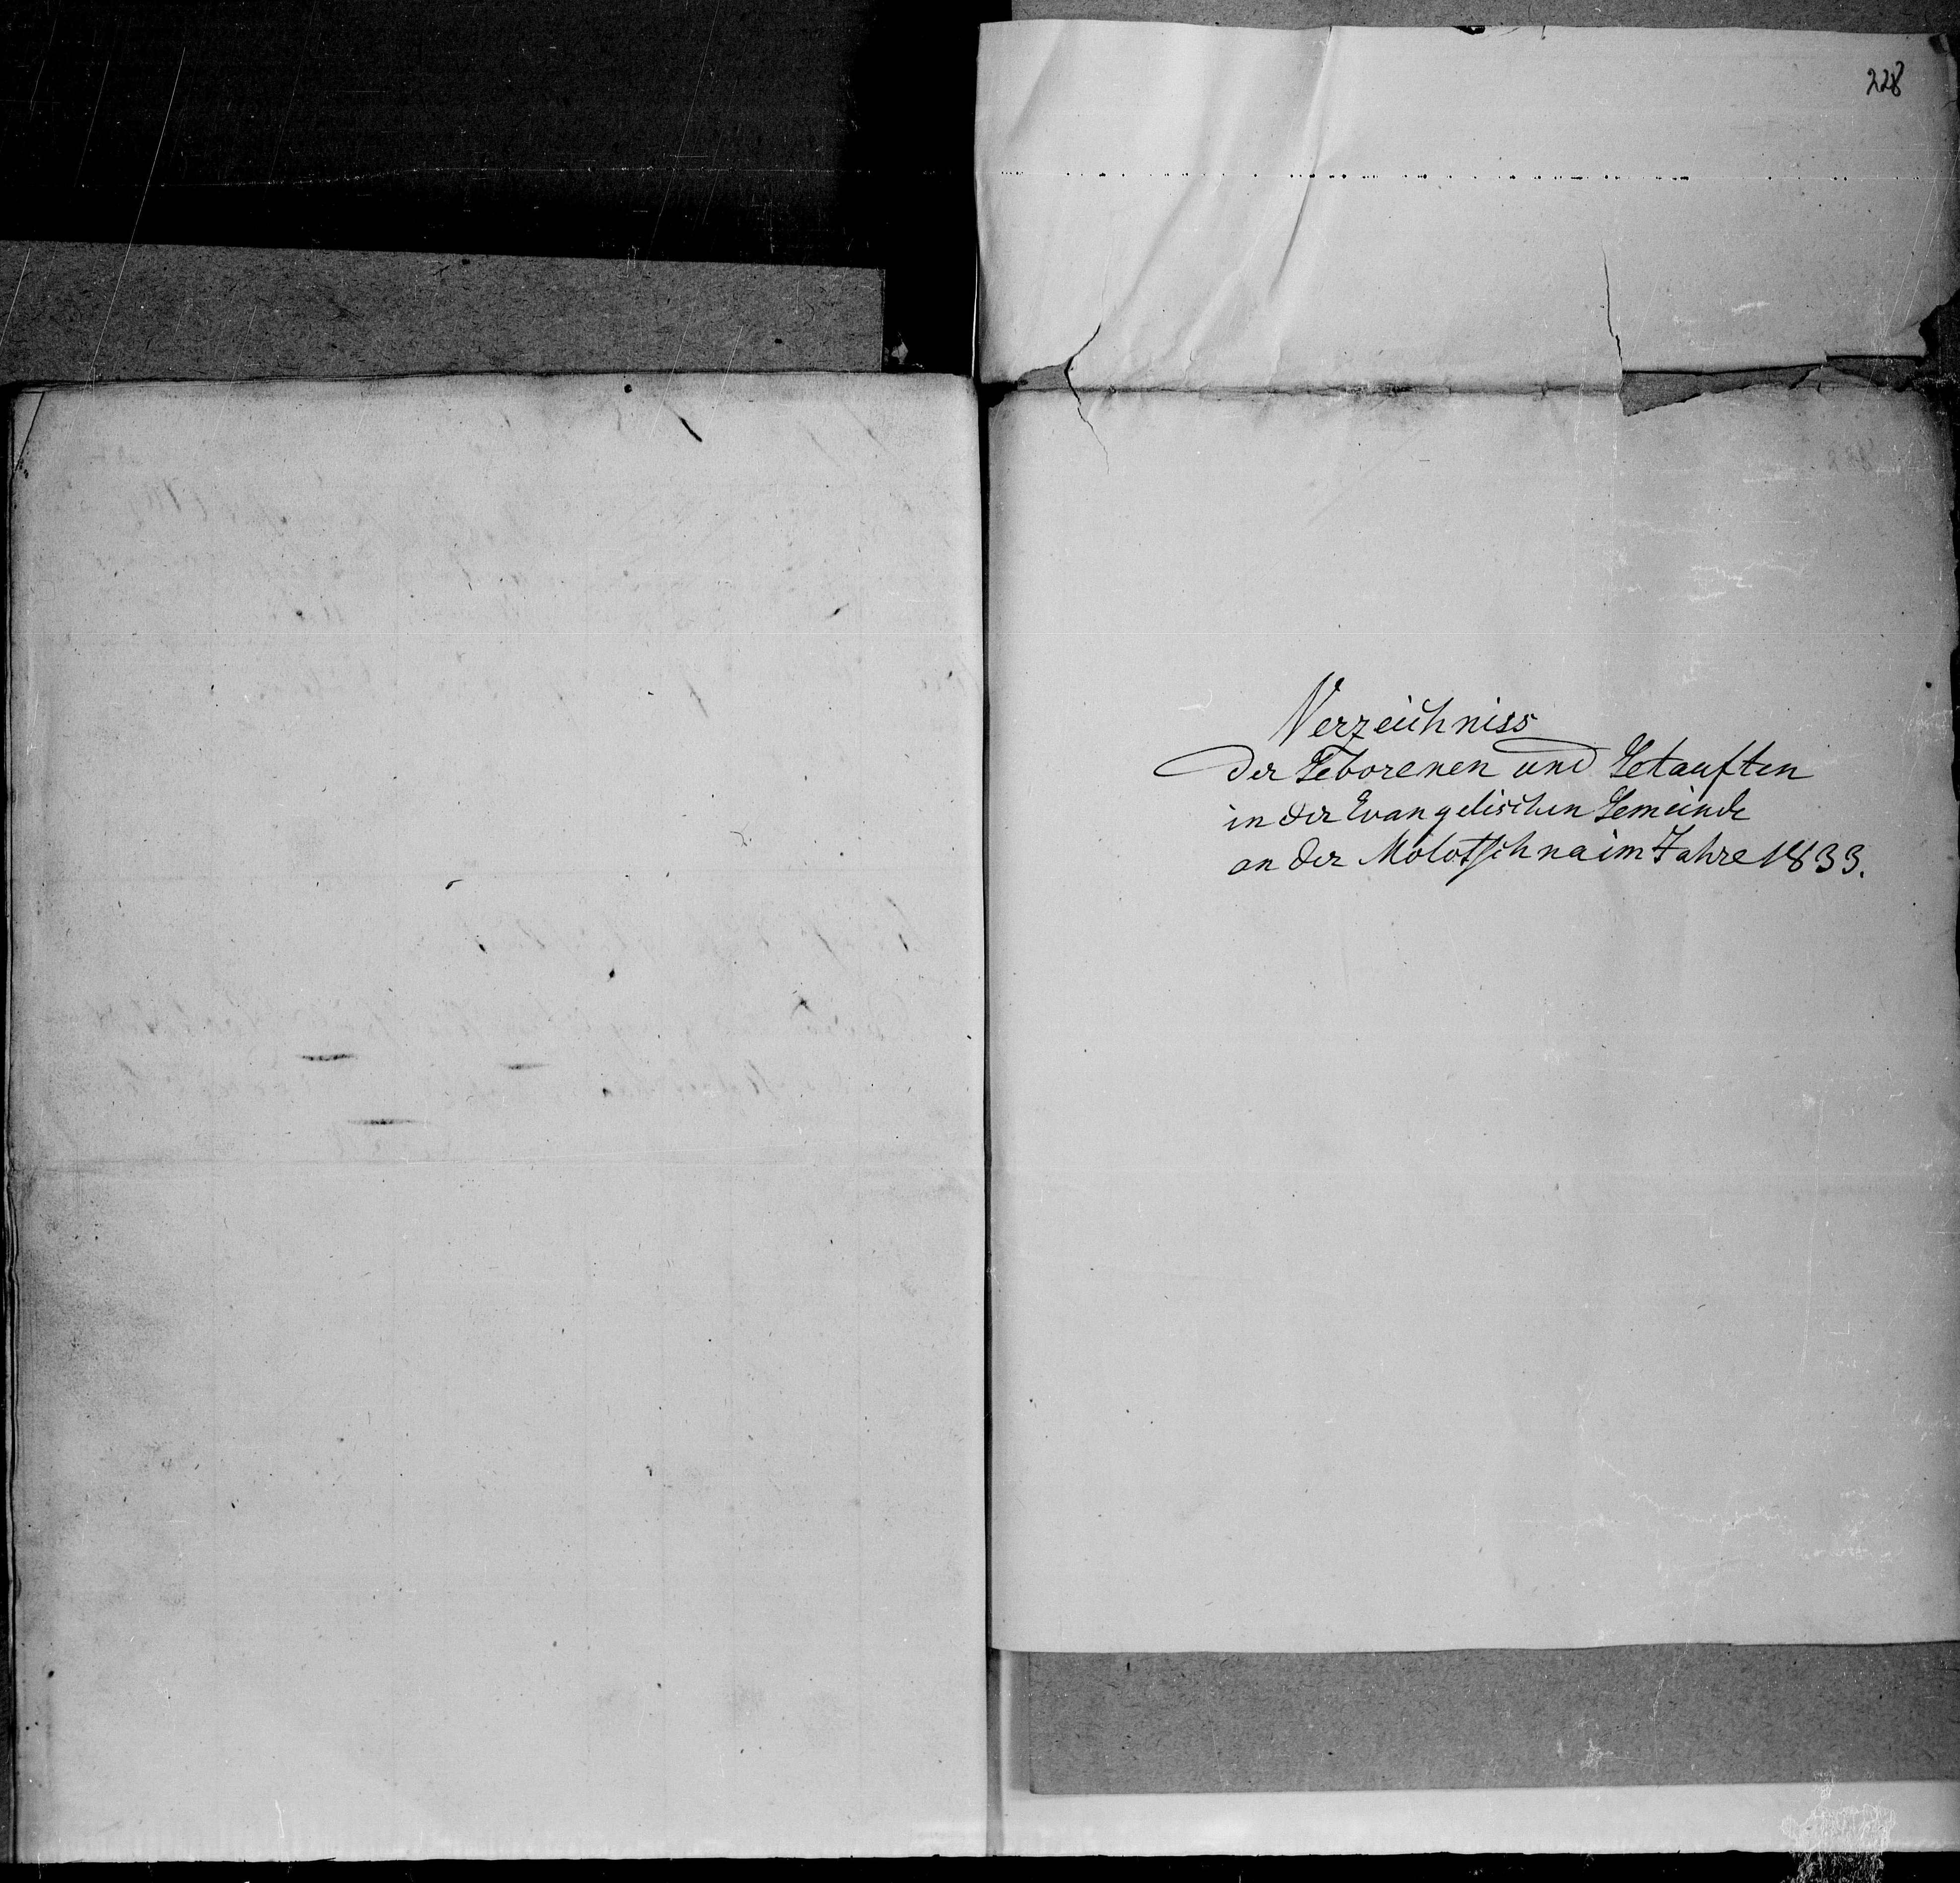 228
Verzeichniss
der Geborenen und Getauften
in der Evangelischen Gemeinde
an der Molotschna im Jahre 1833.